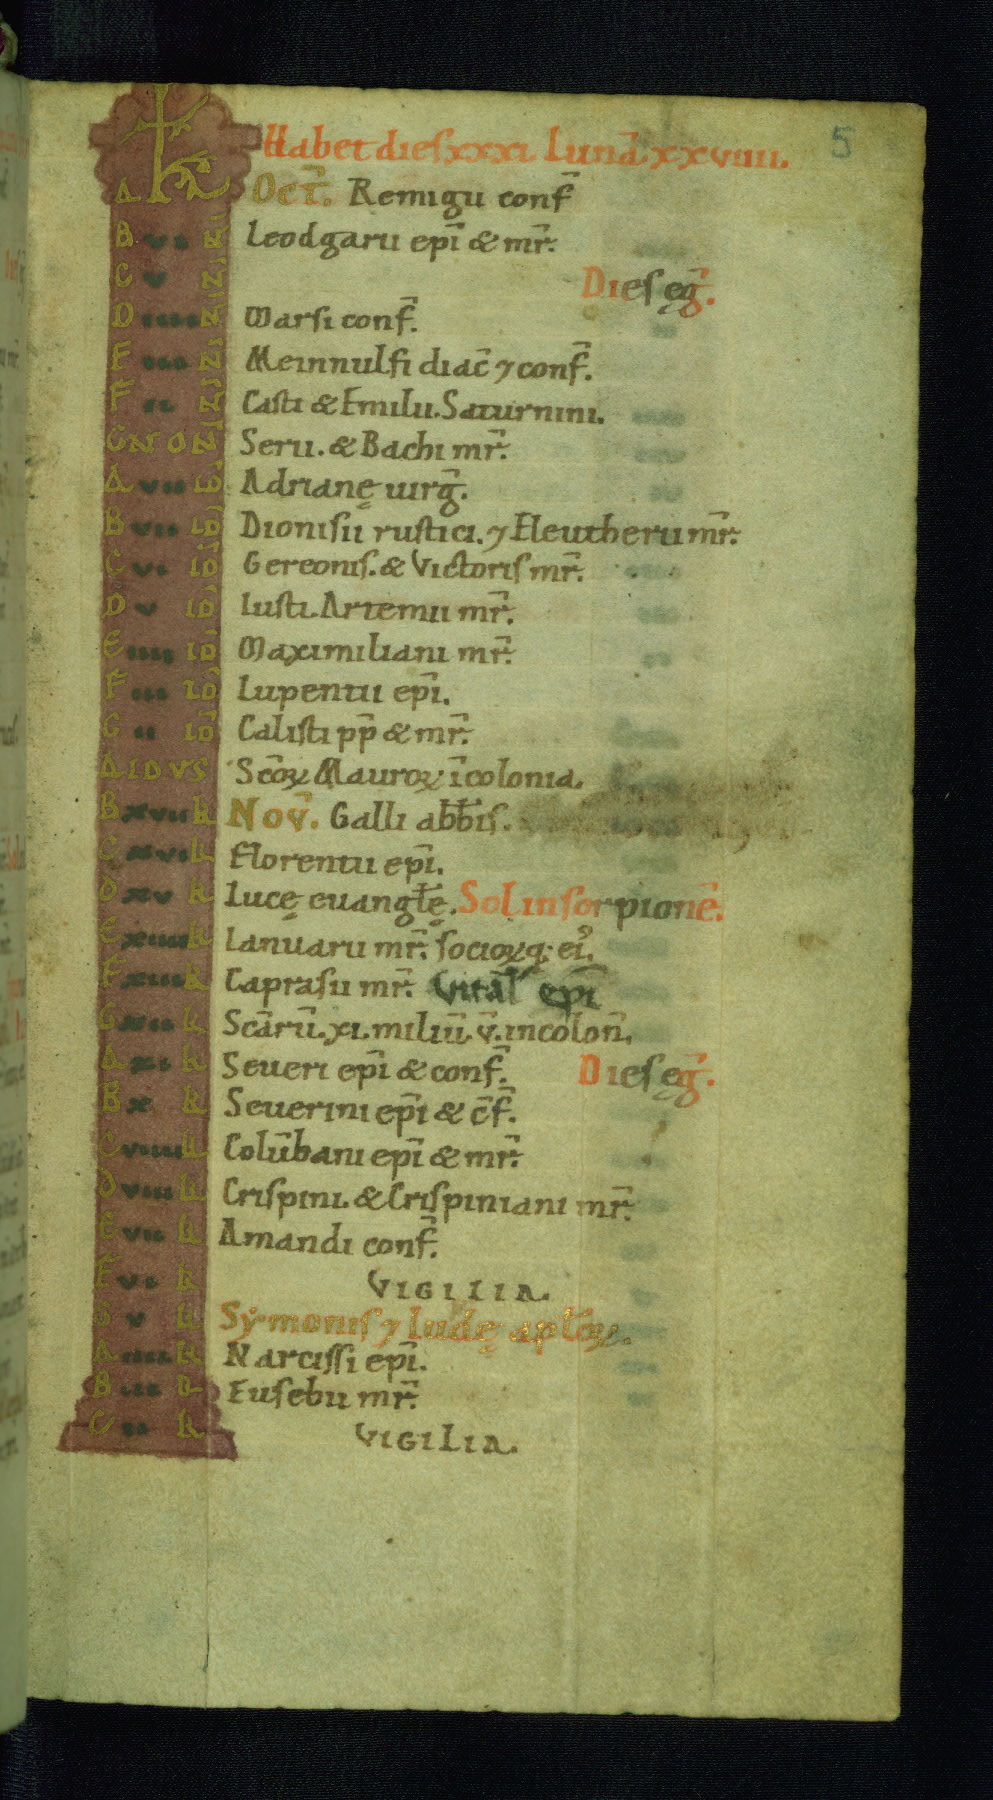 KL Habet dies xxxi Lunā xxviiii. 5
A Oct̄. Remigii conf̄
B vi N̄ Leodgarii ep̄i & mr̄.
C v N̄ Dies eḡ.
D iiii N̄ Marsi conf̄.
E iii N̄ Meinnulfi diac̄ ⁊ conf̄.
F ii N̄ Casti & Emilii. Saturnini.
G NON̄ Serii. & Bachi mr̄.
A viii ID̄ Adrianę uirḡ.
B vii ID̄ Dionisii rustici. ⁊ Eleutherii mr̄.
C vi ID̄ Gereonis. & Victoris mr̄.
D v ID̄ Iusti. Artemii mr̄.
E iiii ID̄ Maximiliani mr̄.
F iii ID̄ Lupentii ep̄i.
G ii ID̄ Calisti pp̄ & mr̄.
A IDVS Sc̄oꝝ Mauroꝝ ī colonia.
B xvii k Nov̄. Galli abb̄is.
C xvi k Florentii ep̄i.
D xv k Lucę euangl̄ę. Sol in scorpionē.
E xiiii k Ianuarii mr̄. socioꝝq; ei᾿.
F xiii k Caprasii mr̄. Vital̄ ep̄i
G xii k Sc̄arū. xi. miliū. v̄. in colon̄.
A xi k Seueri ep̄i & conf̄. Dies eḡ.
B x k Seuerini ep̄i & c̄f̄.
C viiii k Colūbani ep̄i & mr̄.
D viii k Crispini. & Crispiniani mr̄.
E vii k Amandi conf̄.
F vi k VIGILIA.
G v k Sẏmonis ⁊ Iudę apl̄oꝝ.
A iiii k Narcissi ep̄i.
B iii k Eusebii mr̄.
C ii k VIGILIA.